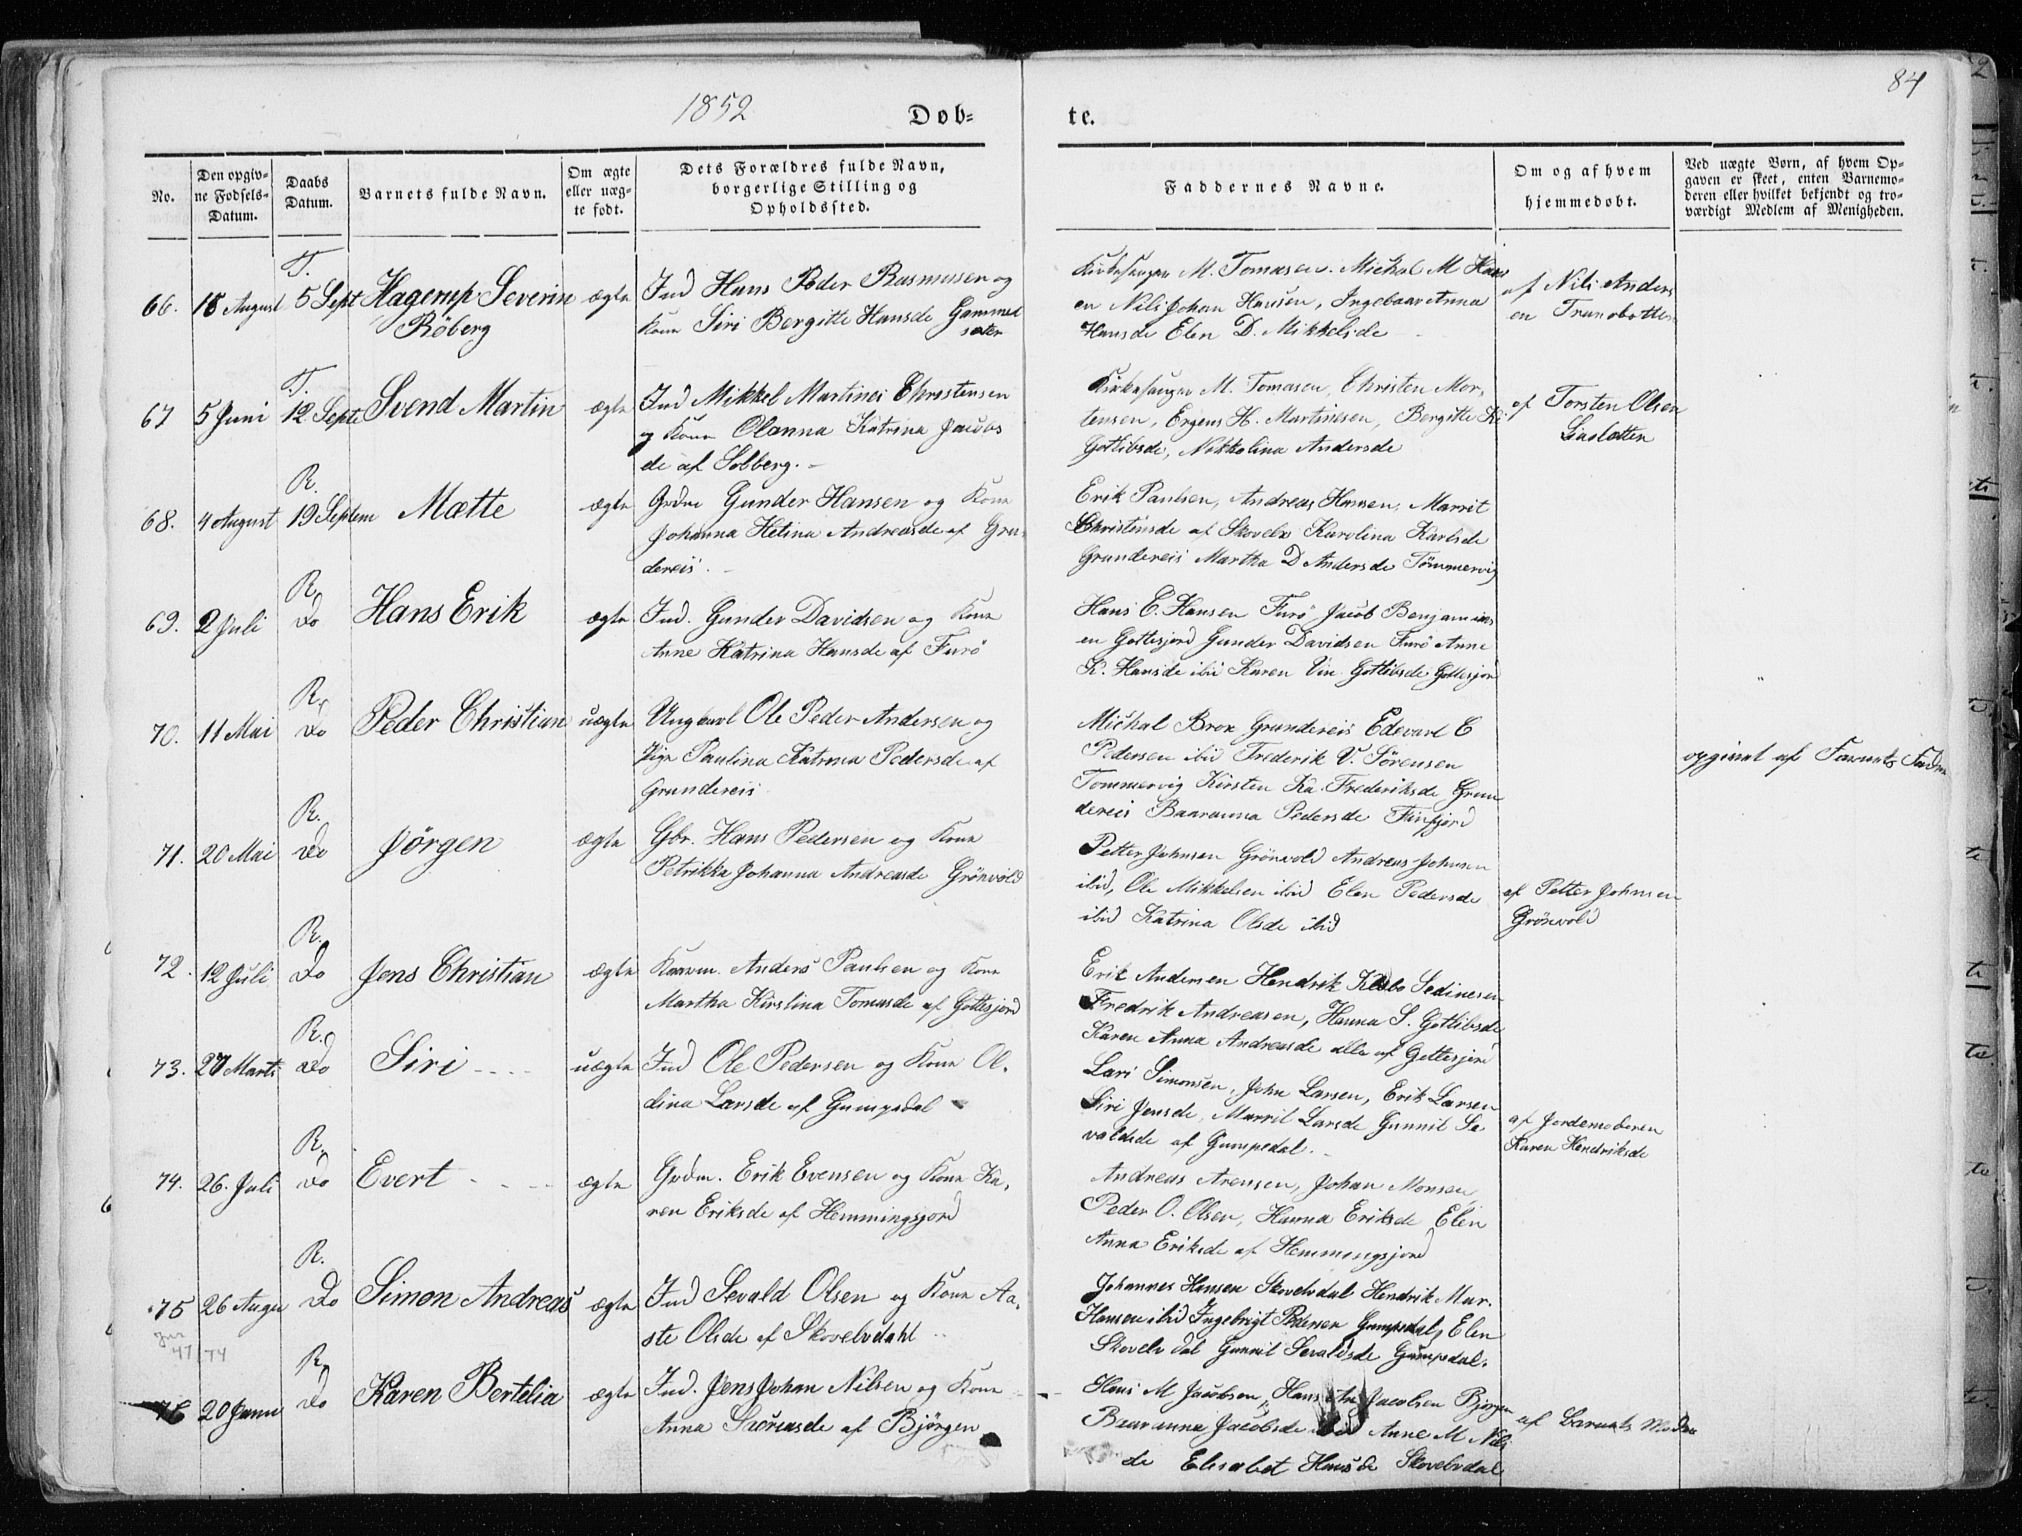 1852
Dob-
te.
84
No.
Den opgiv-
ne Fodsels-
Datum.
Daabs
Datum.
Barnets fulde Navn.
Om ægte
eller uæg-
te født.
Dets Forældres fulde Navn,
borgerlige Stilling og
Opholdssted.
Faddernes Navne.
Om og af hvem
hjemmedobt.
Ved uægte Born, af hvem Op-
gaven er skeet, enten Barnemo-
deren eller hvilket bekjendt og tro-
værdigt Medlem af Menigheden.
T.
66. 18 August 5 Sept Hagerup Severin ægte Ind Hans Peder Rasmusen og
Røberg
Kone Siri Bergitte Hansde Gammel
sæter
Kirkesanger M. Tomasen. Michal M Hans
en Nils Johan Hansen, Ingebaar Anna
Hansde Elen D. Mikkelsde
af Nils Anders
en Tranobotten
T.
67 5 Juni 12 Septe Svend Martin ægte Ind Mikkel Martines Christensen
og Kone Olanna Katrina Jacobs
de af Solberg.
Kirkesanger M. Tomasen, Christen Mor-
tensen, Ergens H. Martinesen, Bergitte K
Gotlibsde, Nikkolina Andersde
af Torsten Olsen
Liasletten
R.
68. 4 August 19 Septem Mætte ægte Grdm Gunder Hansen og Kone
Johanna Helina Andreasde af Grun-
dereis.
Erik Paulsen, Andreas Hansen, Marrit
Christensde af Skovelv Karolina Karlsde
Grundereis Martha D Andersde Tömmervig
R.
69. 2 Juli Do Hans Erik ægte Ind. Gunder Davidsen og Kone
Anne Katrina Hansde af Furö
Hans E. Hansen Furö Jacob Benjamins
en Gottesjord Gunder Davidsen Furö Anne
K. Hansde ibid Karen Vin. Gotlibsde Gottesjord
R.
70. 11 Mai Do Peder Christian uægte Ungkarl Ole Peder Andersen og
Pige Paulina Katrina Pedersde af
Grundereis
Michal Brox Grundereis Edevard E
Pedersen ibid Frederik V. Sörensen
Tommervig Kirsten Ka. Frederiksde Grun
dereis Baaranna Pedersde Finfjord
opgivet af Barnets Fader
R.
71. 20 Mai Do Jörgen ægte Gbr. Hans Pedersen og Kone
Petrikka Johanna Andreasde Grönvold
Petter Johnsen Grönvold Andreas Johnsen
ibid, Ole Mikkelsen ibid Elen Pedersde
ibid Katrina Olsde ibid
af Petter Johnsen
Grönvold
R.
72. 12 Juli Do Jens Christian ægte Anders Paulsen og Kone
Martha Kirstina Tomasde af Gottesjord
Erik Andersen Hendrik Sedinesen
Fredrik Andreasen, Hanna S. Gotlibsde
Karen Anna Andreasde alle af Gottesjord
R.
73. 27 Marts Do Siri uægte Ind Ole Pedersen og Kone Ol-
dina Larsde af Gumpedal
Lars Simonsen, John Larsen, Erik Larsen
Siri Jensde, Marrit Larsde Gunnil Se
valdsde af Gumpedal.
af Jordemoderen
Karen Hendriksde
R.
74. 26. Juli Do Evert ægte Grdm. Erik Evensen og Kone Ka-
ren Eriksde af Hemmingsjord
Andreas Arensen, Johan Monsen
Peder O. Olsen, Hanna Eriksde Elen
Anna Eriksde af Hemmingsjord
R.
75 26 Augu Do Simon Andreas ægte Ind Sevald Olsen og Kone Aa-
ste Olsde af Skovelvdahl
47/74
Johannes Hansen Skovelvdal Hendrik Mar.
Hansen ibid Ingebrigt Pedersen Gumpedal, Elen
Skovelvdal Gunnil Sevaldsde Gumpedal.
R.
76 20 Janu Do Karen Bertelia ægte Ind. Jens Johan Nilsen og Kone
Anna af Bjørgen
Hans M Jacobsen, Hans Jacobsen Bjørgen
Baaranna Jacobsde ibid Anne M Nils
de Elisabet Hansde Skovelvdal
af Barnets Moder